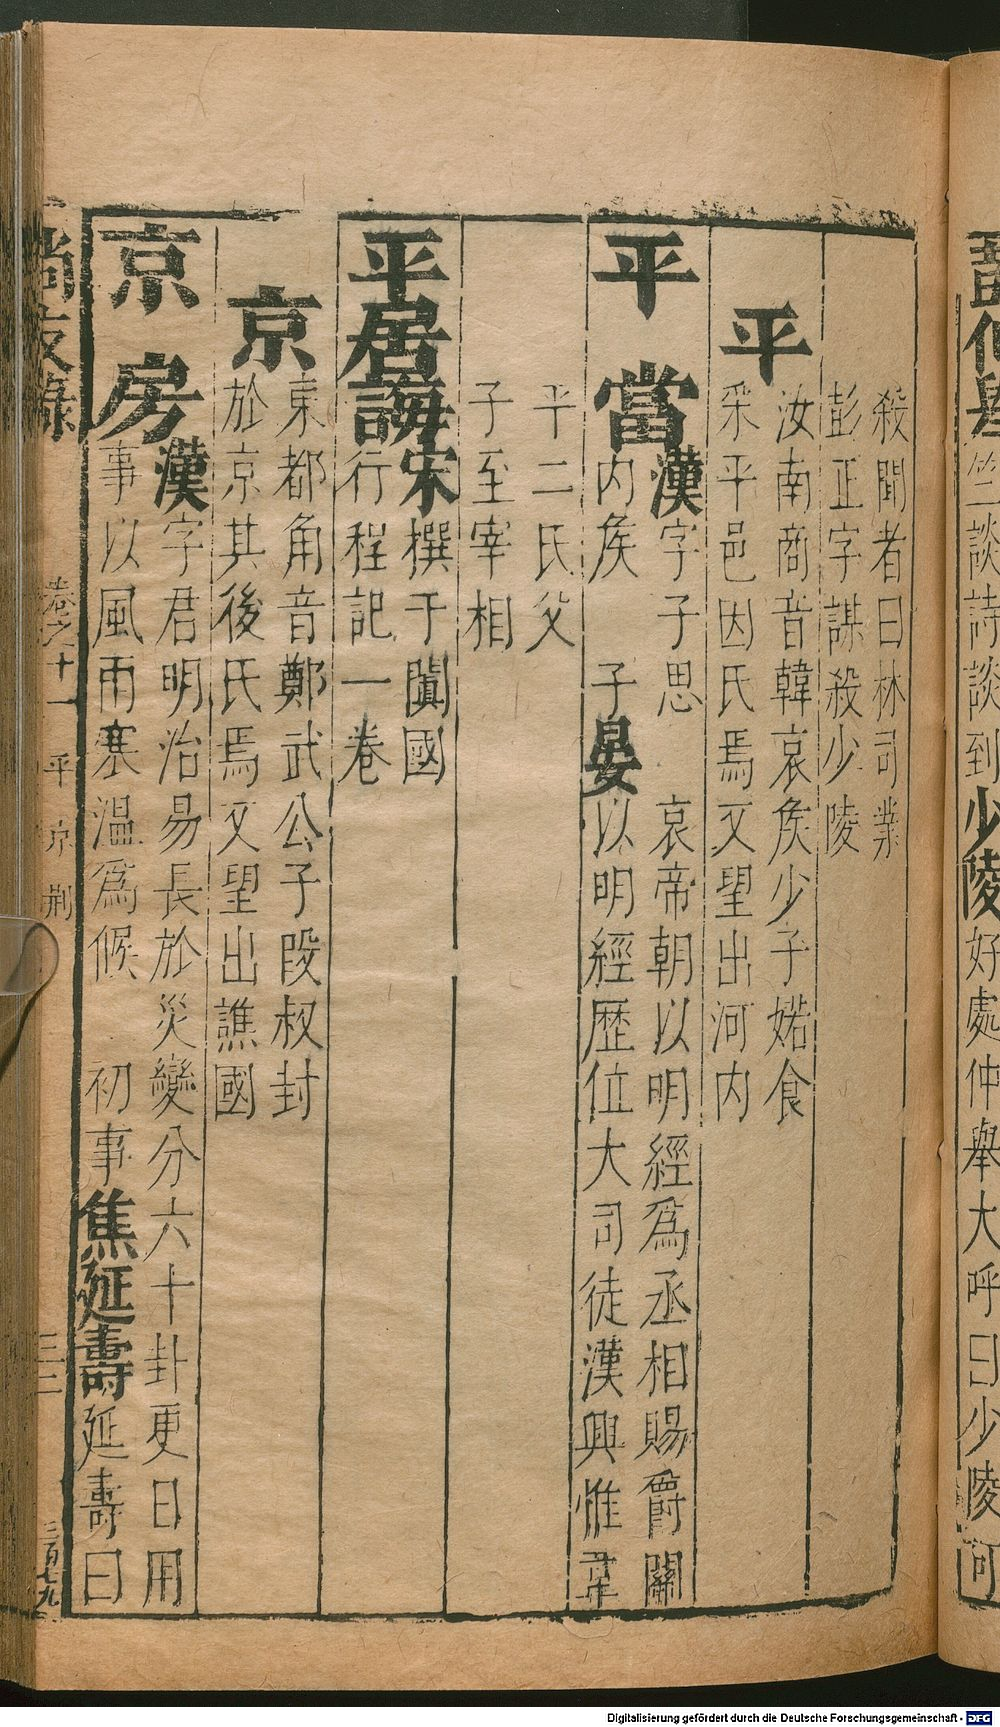 談詩談到少陵好處仲舉大呼曰少陵可
殺聞者曰林司業
彭正字謀殺少陵
平
汝南商音韓哀矦少子婼食
采平邑因氏焉又望出河内
平當
漢字子思　哀帝朝以明經爲丞相賜爵關
内矦　子晏以明經歷位大司徒漢興惟韋
平二氏父
子至宰相
平居誨
宋撰于闐國
行程記一卷
京
東都角音鄭武公子段叔封
於京其後氏焉又望出譙國
京房
漢字君明治易長於災變分六十卦更日用
事以風雨寒温爲候　初事焦延壽延壽曰
尚友錄
卷之十一
平京荆
三二
三百七九
Digitalisierung gefördert durch die Deutsche Forschungsgemeinschaft - DFG